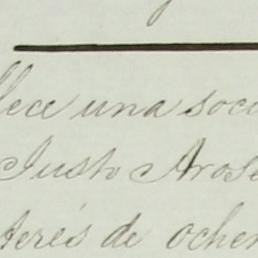 llece una soci
Justo Arose
terés de ochen